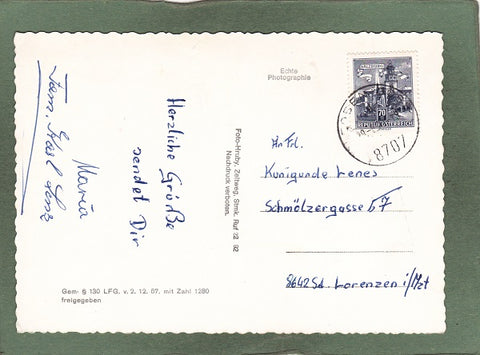 Herzliche Grüße
sendet Dir
Maria
Fam. Karl
Foto-Hruby, Zeltweg, Stmk. Ruf 12 92
Nachdruck verboten.
Gem. § 130 LFG. v. 2. 12. 67. mit Zahl 1280
freigegeben
Echte
Photographie
REPUBLIK ÖSTERREICH
70
8707
An Frl.
Kunigunde Lenes
Schmölzergasse 57
8642 Sd. Lorenzen i/Mzt